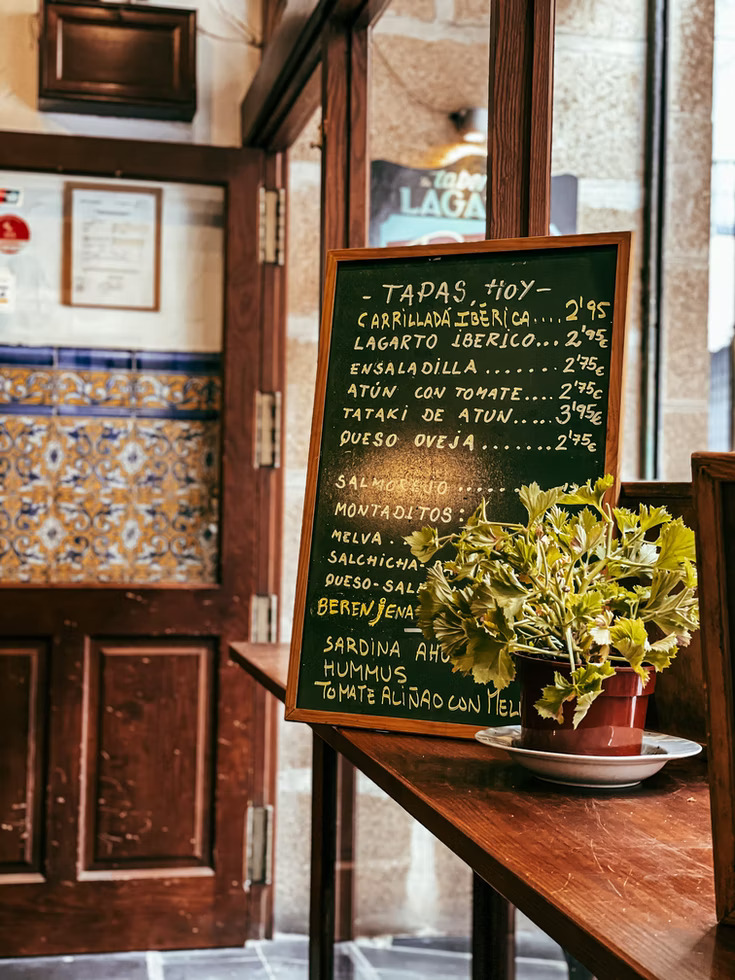 LAGA
- TAPAS, HOY -
CARRILLADA IBÉRICA.... 2'95
LAGARTO IBERICO... 2'95€
ENSALADILLA ....... 2'75€
ATÚN CON TOMATE.... 2'75€
TATAKI DE ATUN..... 3'95€
QUESO OVEJA ....... 2'75€
SALMOREJO ......
MONTADITOS:
MELVA .
SALCHICHA
QUESO-SAL
BERENJENA
SARDINA AHU
HUMMUS
TOMATE ALIÑAO CON MEL